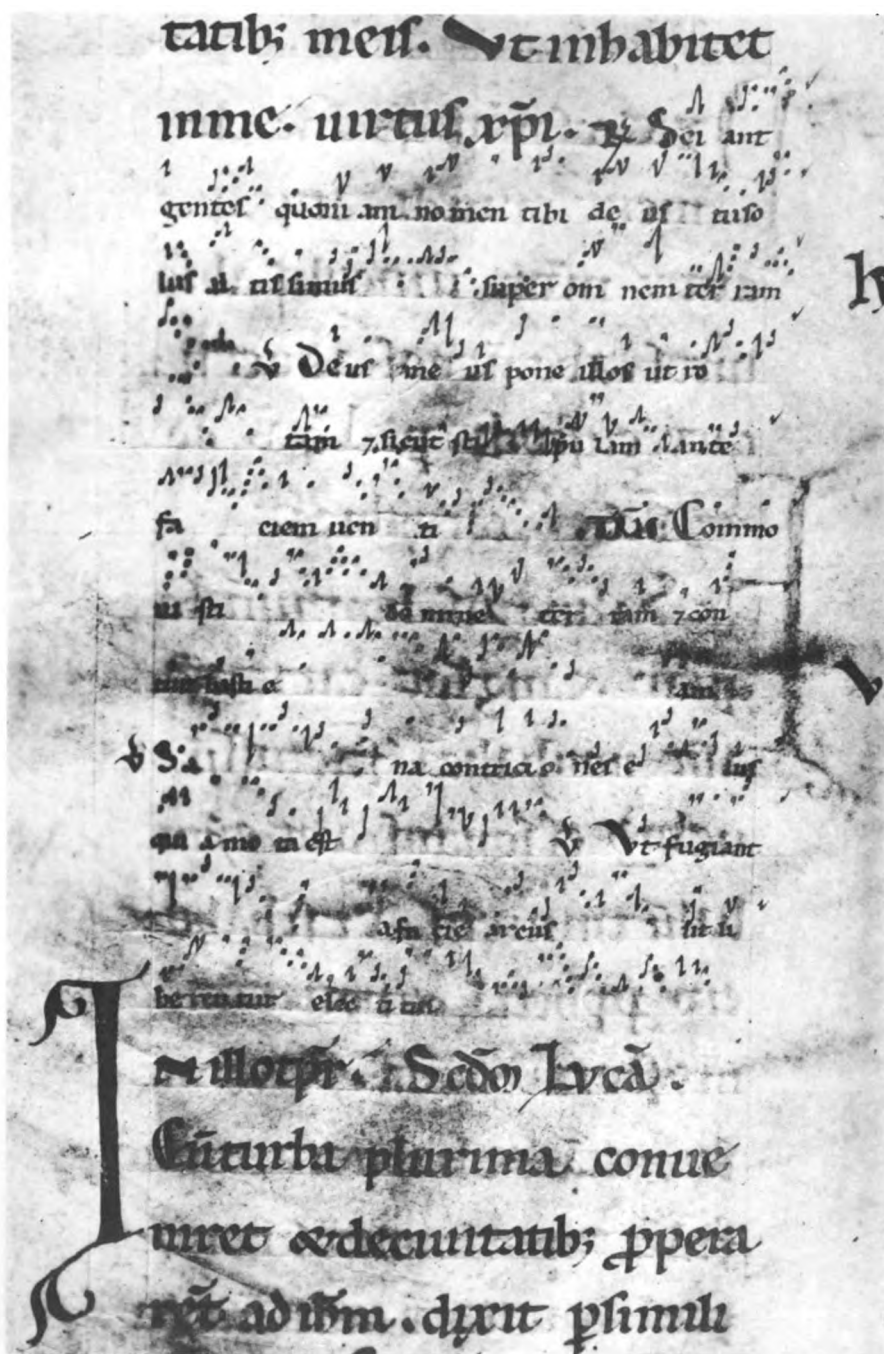 tatib; meis. Vt inhabitet
in me. uirtus xp̄i. R Sci ant
gentes quoni am nomen tibi de us tu so
lus al tissimus super om nem ter ram
V De us me us pone illos ut ro
tam ⁊ sicut sti pu lam ante
fa ciem uen ti TR̄C Commo
ui sti do mine ter ram ⁊ con
tur basti e am
V Sa na contricio nes e ius
qui a mo ta est V Vt fugiant
a fa cie arcus ut li
berentur elec ti tui
IN illo tp̄r. Scd̄m Lvcā.
Cū turba plurima conue
niret & de ciuitatib; ꝓpera
rēt ad ih̄m. dixit ꝑ simili